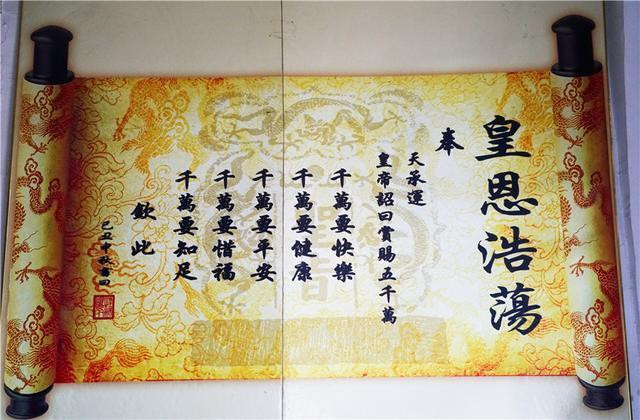 皇恩浩蕩
奉
天承運
皇帝詔曰賞賜五千萬
千萬要快樂
千萬要健康
千萬要平安
千萬要惜福
千萬要知足
欽此
己丑中秋